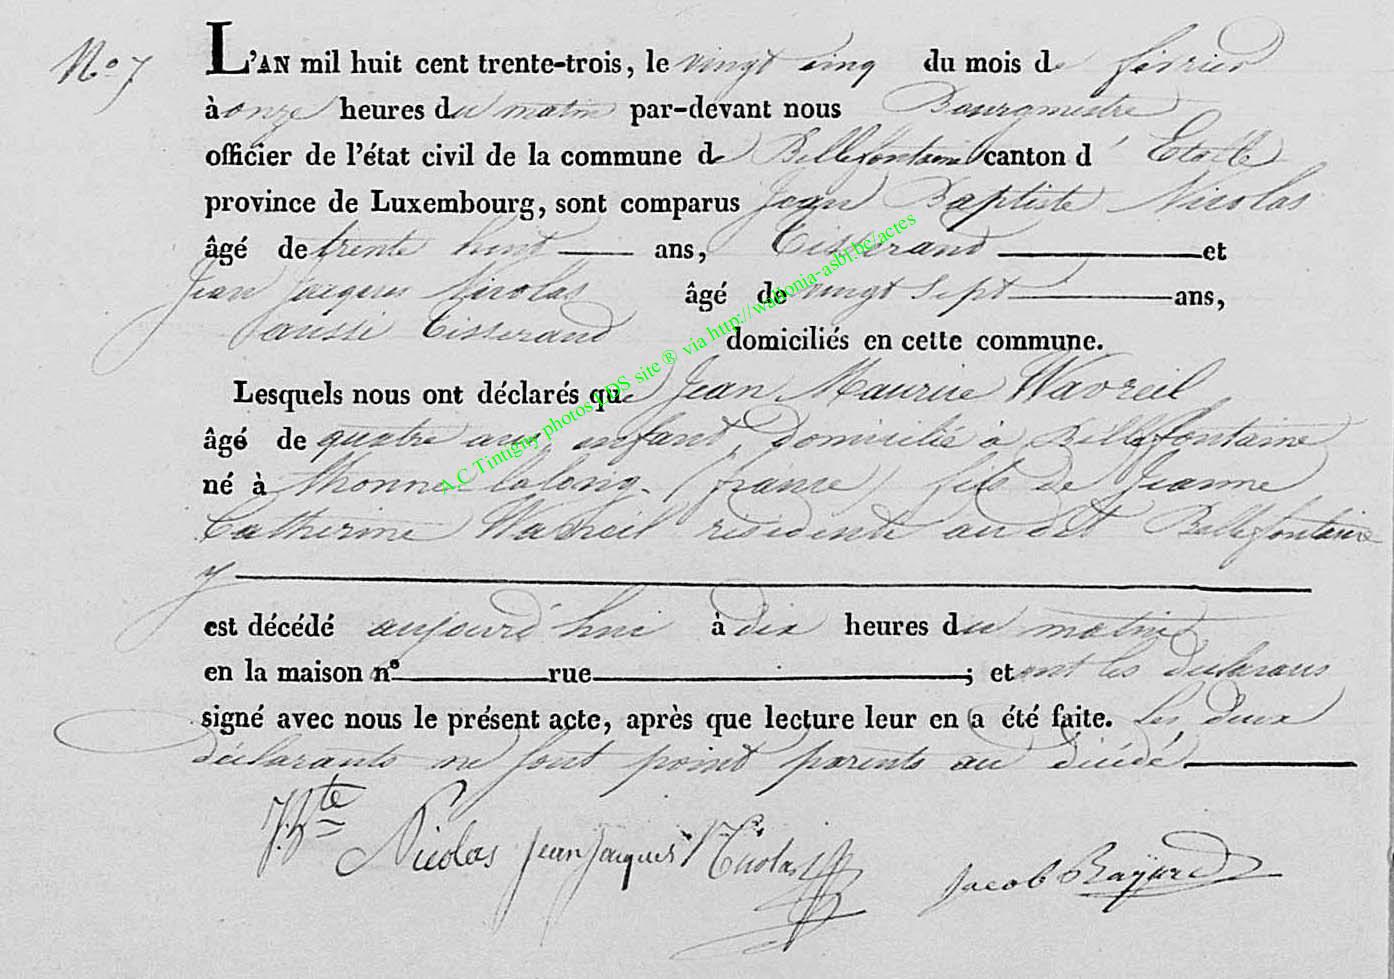 No 7
L'AN mil huit cent trente-trois, le vingt cinq du mois de février
à onze heures du matin par-devant nous Bourgmestre
officier de l'état civil de la commune de Bellefontaine canton d' Etalle
province de Luxembourg, sont comparus Jean Baptiste Nicolas
âgé de trente huit ans, Tisserand et
Jean Jacques Nicolas âgé de vingt sept ans,
aussi tisserand domiciliés en cette commune.
Lesquels nous ont déclarés que Jean Maurice Wavreil
âgé de quatre ans enfant, domicilié à Bellefontaine
né à thonne-lalong. (france) fils de Jeanne
Catherine Wavreil résidente au dit Bellefontaine
y
est décédé aujourd'hui à dix heures du matin
en la maison nº rue ; et ont les déclarans
signé avec nous le présent acte, après que lecture leur en a été faite. Les deux
déclarants ne sont point parents au décédé
J. Bte Nicolas Jean Jacques Nicolas Jacob Bayard
A.C Tintigny photos LDS site ® via http://wallonia-asbl.be/actes